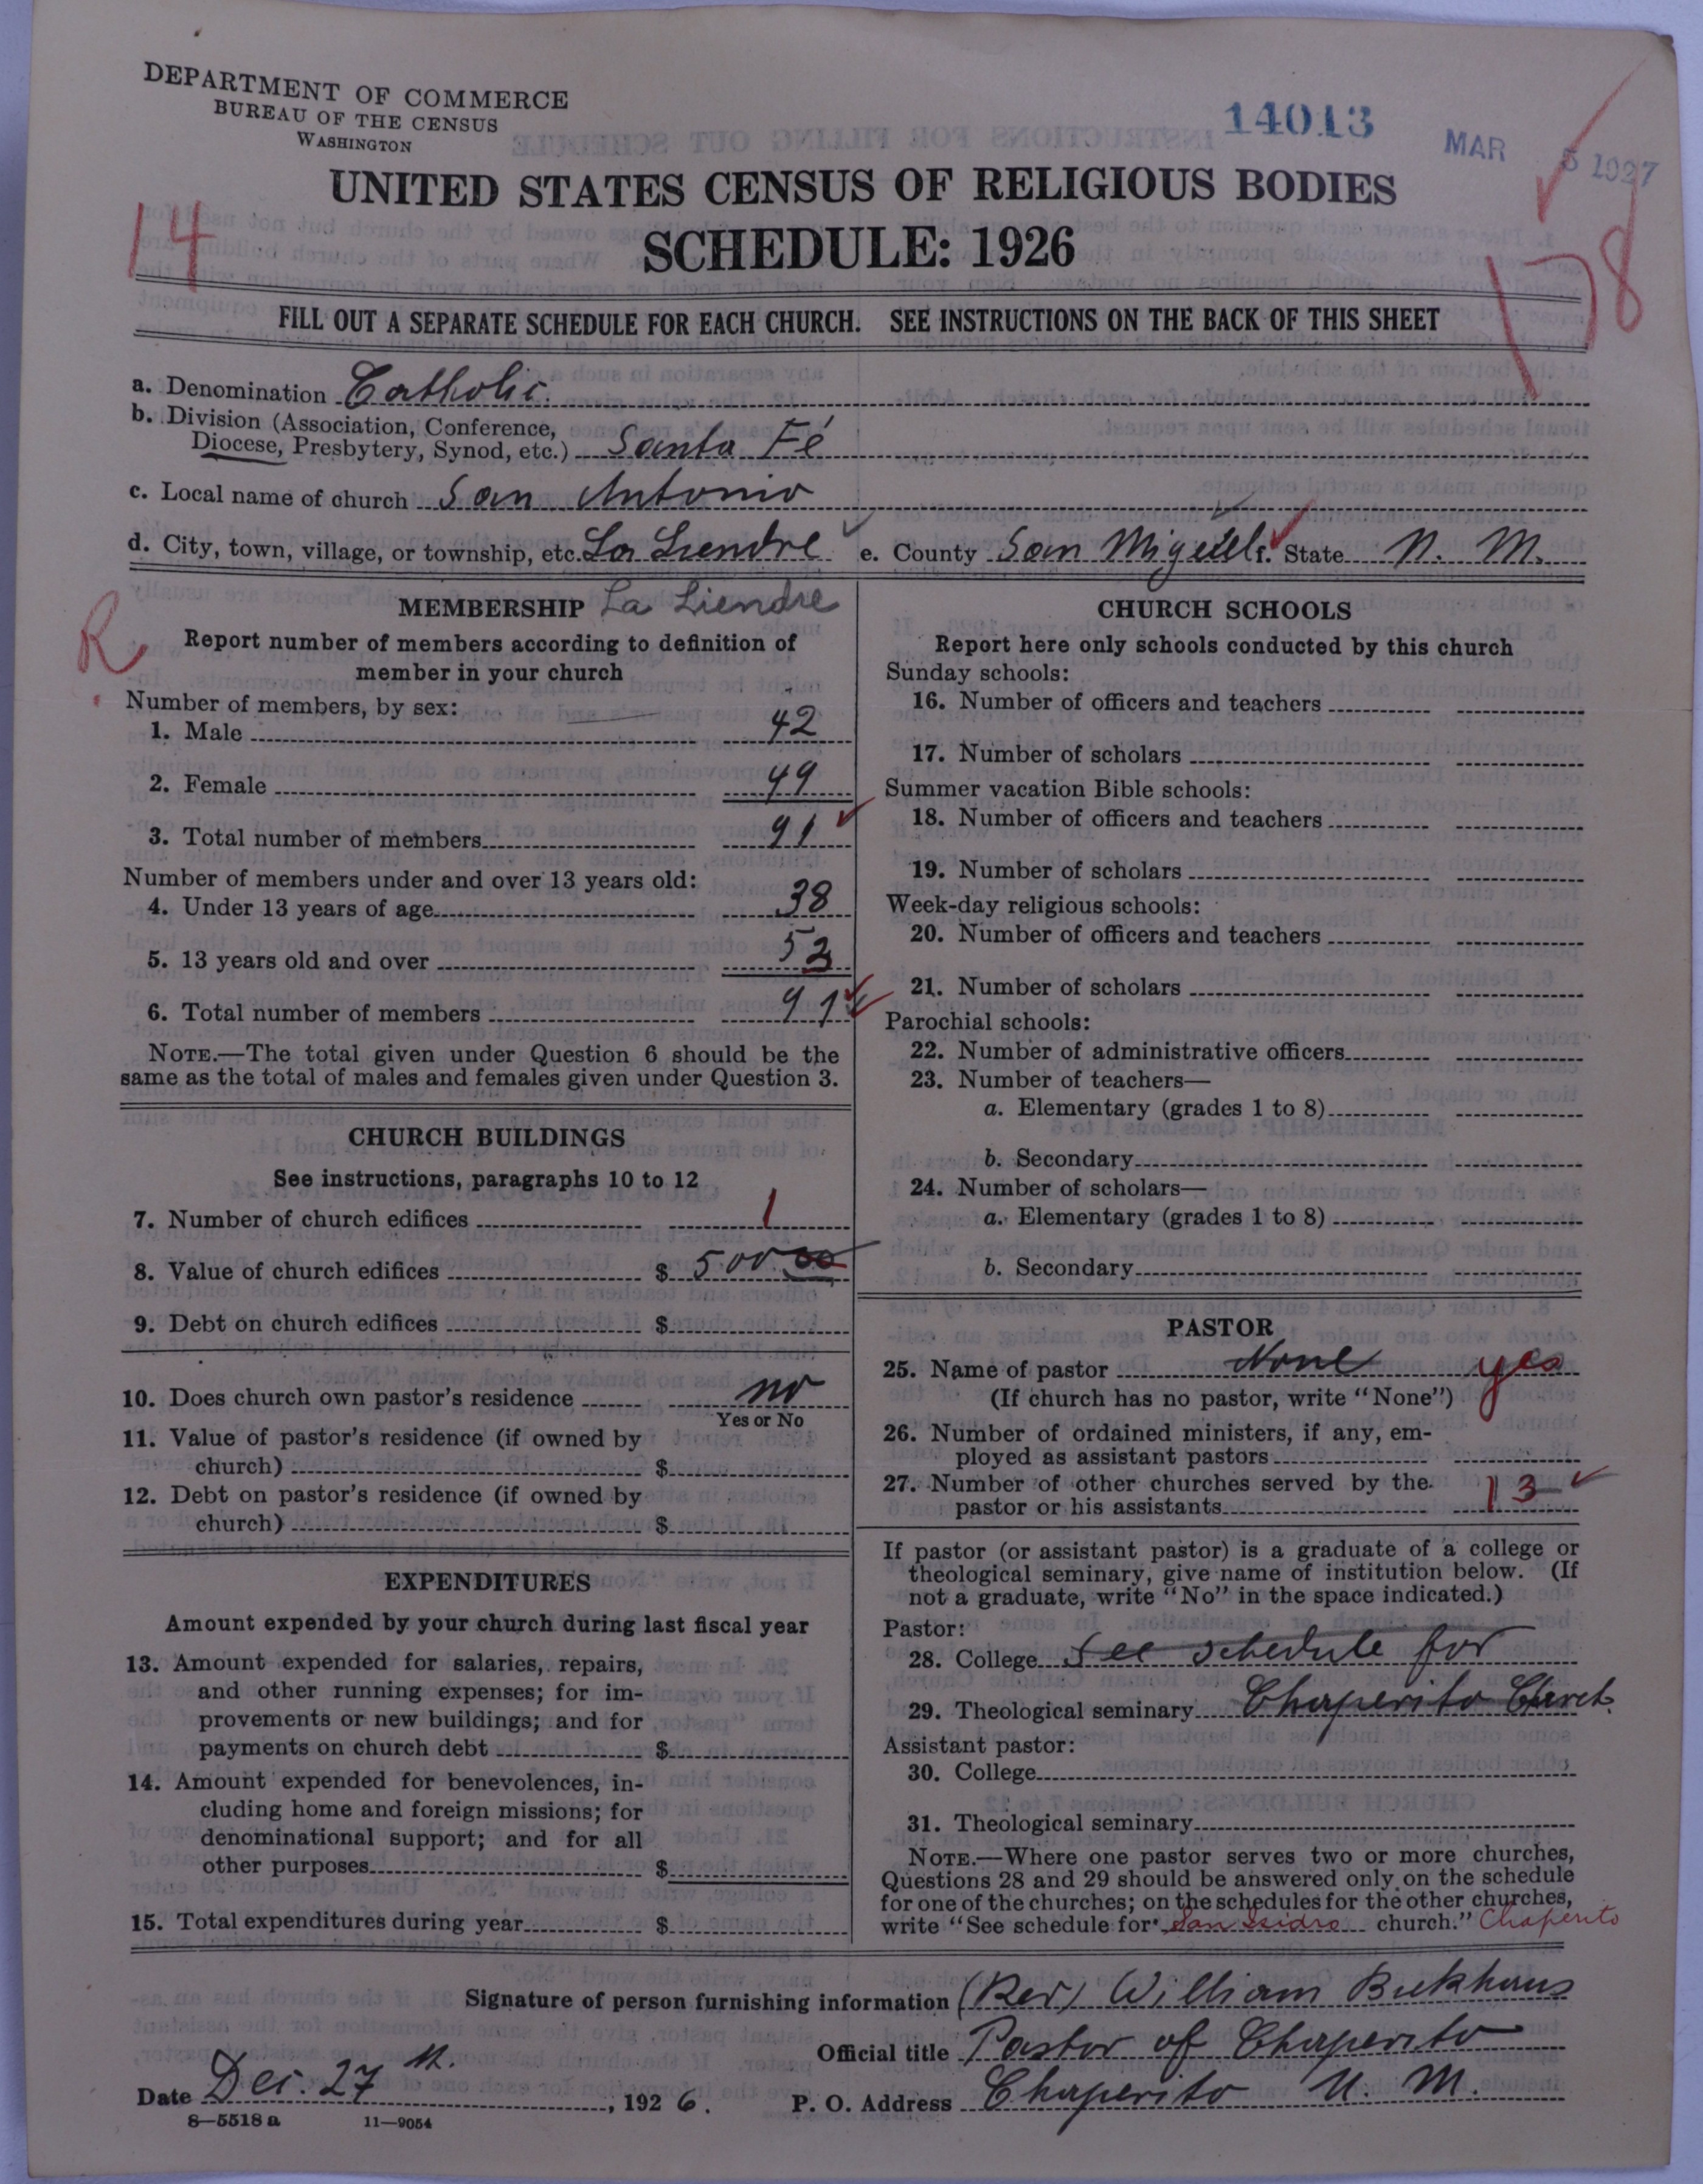 DEPARTMENT OF COMMERCE
BUREAU OF THE CENSUS
WASHINGTON
14013
MAR 5 1927
UNITED STATES CENSUS OF RELIGIOUS BODIES
SCHEDULE: 1926
14
178
FILL OUT A SEPARATE SCHEDULE FOR EACH CHURCH. SEE INSTRUCTIONS ON THE BACK OF THIS SHEET
a. Denomination Catholic.
b. Division (Association, Conference,
Diocese, Presbytery, Synod, etc.) Santa Fé
c. Local name of church San Antonio
d. City, town, village, or township, etc. La Liendre e. County San Miguel f. State N. M.
MEMBERSHIP La Liendre
R
Report number of members according to definition of
member in your church
Number of members, by sex:
1. Male 42
2. Female 49
3. Total number of members 91
Number of members under and over 13 years old:
4. Under 13 years of age 38
5. 13 years old and over 53
6. Total number of members 91
NOTE.—The total given under Question 6 should be the
same as the total of males and females given under Question 3.
CHURCH BUILDINGS
See instructions, paragraphs 10 to 12
7. Number of church edifices 1
8. Value of church edifices $ 500.00
9. Debt on church edifices $
10. Does church own pastor's residence no
Yes or No
11. Value of pastor's residence (if owned by
church) $
12. Debt on pastor's residence (if owned by
church) $
EXPENDITURES
Amount expended by your church during last fiscal year
13. Amount expended for salaries, repairs,
and other running expenses; for im-
provements or new buildings; and for
payments on church debt $
14. Amount expended for benevolences, in-
cluding home and foreign missions; for
denominational support; and for all
other purposes $
15. Total expenditures during year $
CHURCH SCHOOLS
Report here only schools conducted by this church
Sunday schools:
16. Number of officers and teachers
17. Number of scholars
Summer vacation Bible schools:
18. Number of officers and teachers
19. Number of scholars
Week-day religious schools:
20. Number of officers and teachers
21. Number of scholars
Parochial schools:
22. Number of administrative officers
23. Number of teachers—
a. Elementary (grades 1 to 8)
b. Secondary
24. Number of scholars—
a. Elementary (grades 1 to 8)
b. Secondary
PASTOR
25. Name of pastor None yes
(If church has no pastor, write "None")
26. Number of ordained ministers, if any, em-
ployed as assistant pastors
27. Number of other churches served by the
pastor or his assistants 13
If pastor (or assistant pastor) is a graduate of a college or
theological seminary, give name of institution below. (If
not a graduate, write "No" in the space indicated.)
Pastor:
28. College See schedule for
29. Theological seminary Chaperito Church
Assistant pastor:
30. College
31. Theological seminary
NOTE.—Where one pastor serves two or more churches,
Questions 28 and 29 should be answered only on the schedule
for one of the churches; on the schedules for the other churches,
write "See schedule for San Isidro church." Chaperito
Signature of person furnishing information (Rev) William Bickhaus
Official title Pastor of Chaperito
Date Dec. 27th. , 1926. P. O. Address Chaperito N. M.
8—5518 a 11—9054